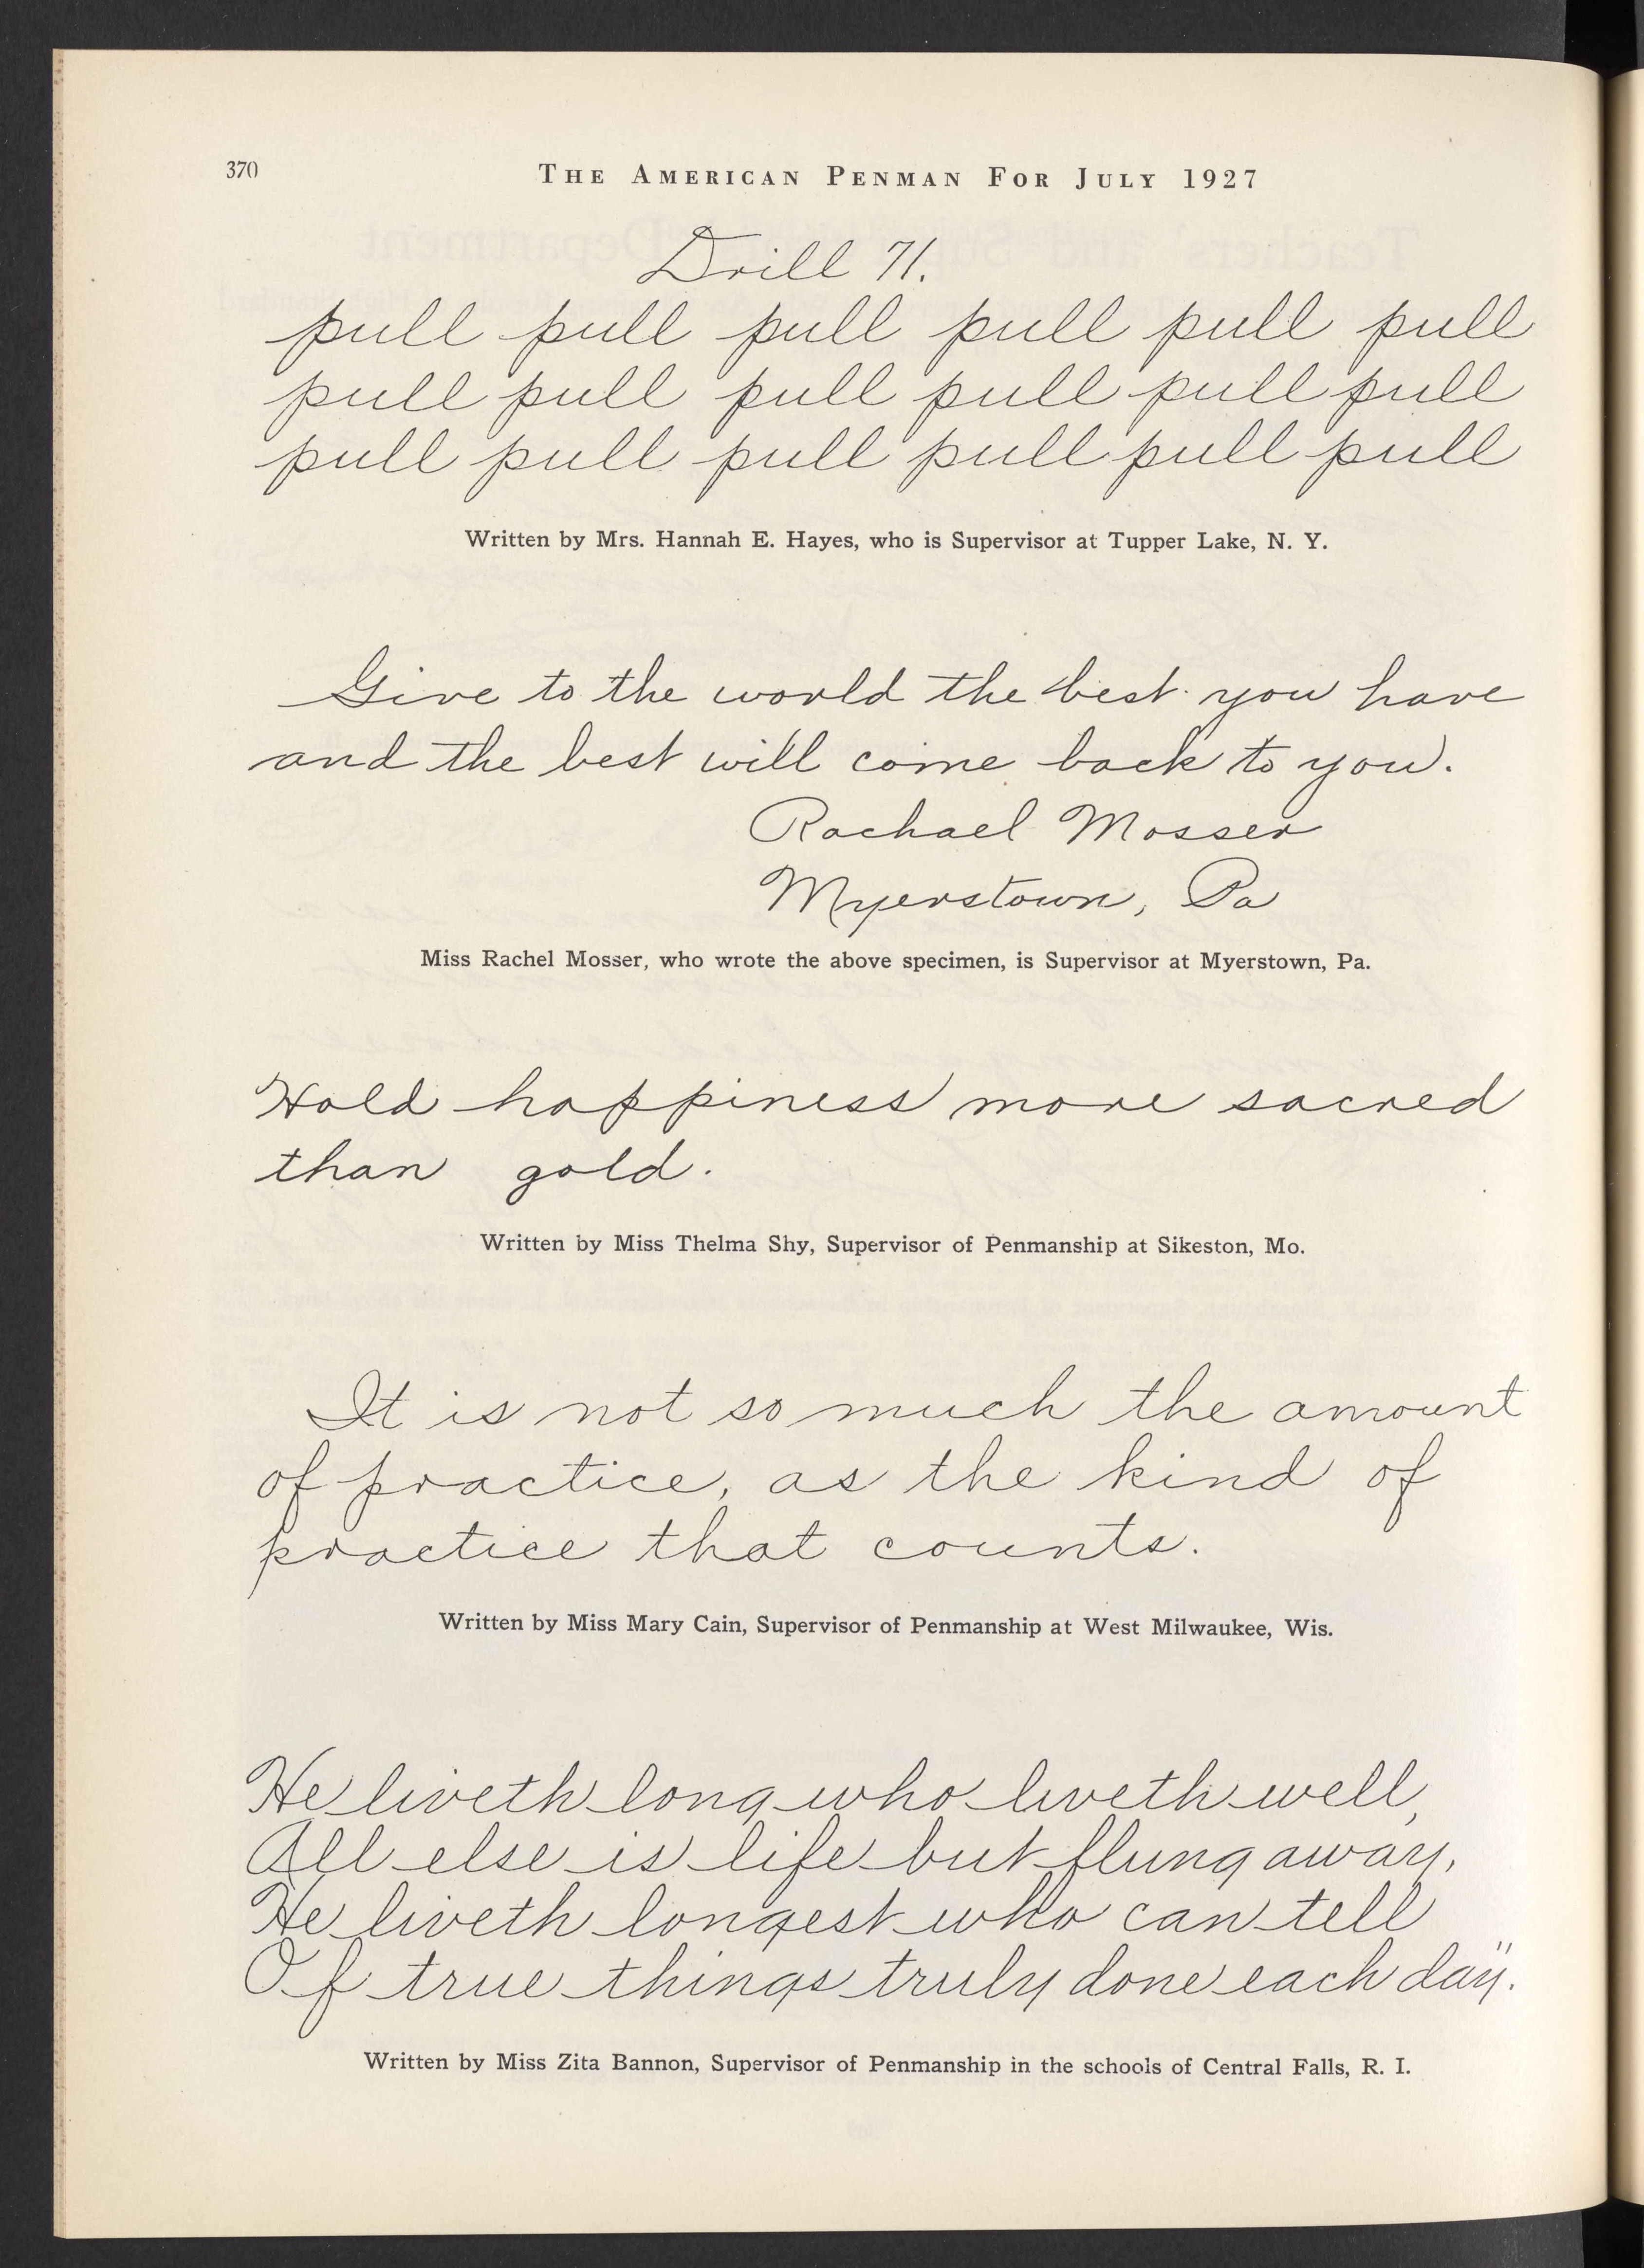 370
THE AMERICAN PENMAN FOR JULY 1927
Drill 71.
pull pull pull pull pull pull
pull pull pull pull pull pull
pull pull pull pull pull pull
Written by Mrs. Hannah E. Hayes, who is Supervisor at Tupper Lake, N. Y.
Give to the world the best you have
and the best will come back to you.
Rachael Mosser
Myerstown, Pa
Miss Rachel Mosser, who wrote the above specimen, is Supervisor at Myerstown, Pa.
Hold happiness more sacred
than gold.
Written by Miss Thelma Shy, Supervisor of Penmanship at Sikeston, Mo.
It is not so much the amount
of practice, as the kind of
practice that counts.
Written by Miss Mary Cain, Supervisor of Penmanship at West Milwaukee, Wis.
He liveth long who liveth well,
All else is life but flung away,
He liveth longest who can tell
Of true things truly done each day".
Written by Miss Zita Bannon, Supervisor of Penmanship in the schools of Central Falls, R. I.